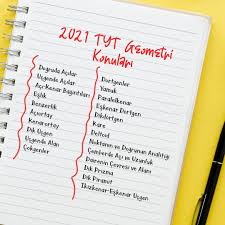 2021 TYT Geometri
Konuları
Doğruda Açılar
Üçgende Açılar
Açı-Kenar Bağıntıları
Eşlik
Benzerlik
Açıortay
Kenarortay
Dik Üçgen
Üçgende Alan
Çokgenler
Dörtgenler
Yamuk
Paralelkenar
Eşkenar Dörtgen
Dikdörtgen
Kare
Deltoid
Noktanın ve Doğrunun Analitiği
Çemberde Açı ve Uzunluk
Dairenin Çevresi ve Alanı
Dik Prizma
Dik Piramit
İkizkenar-Eşkenar Üçgen